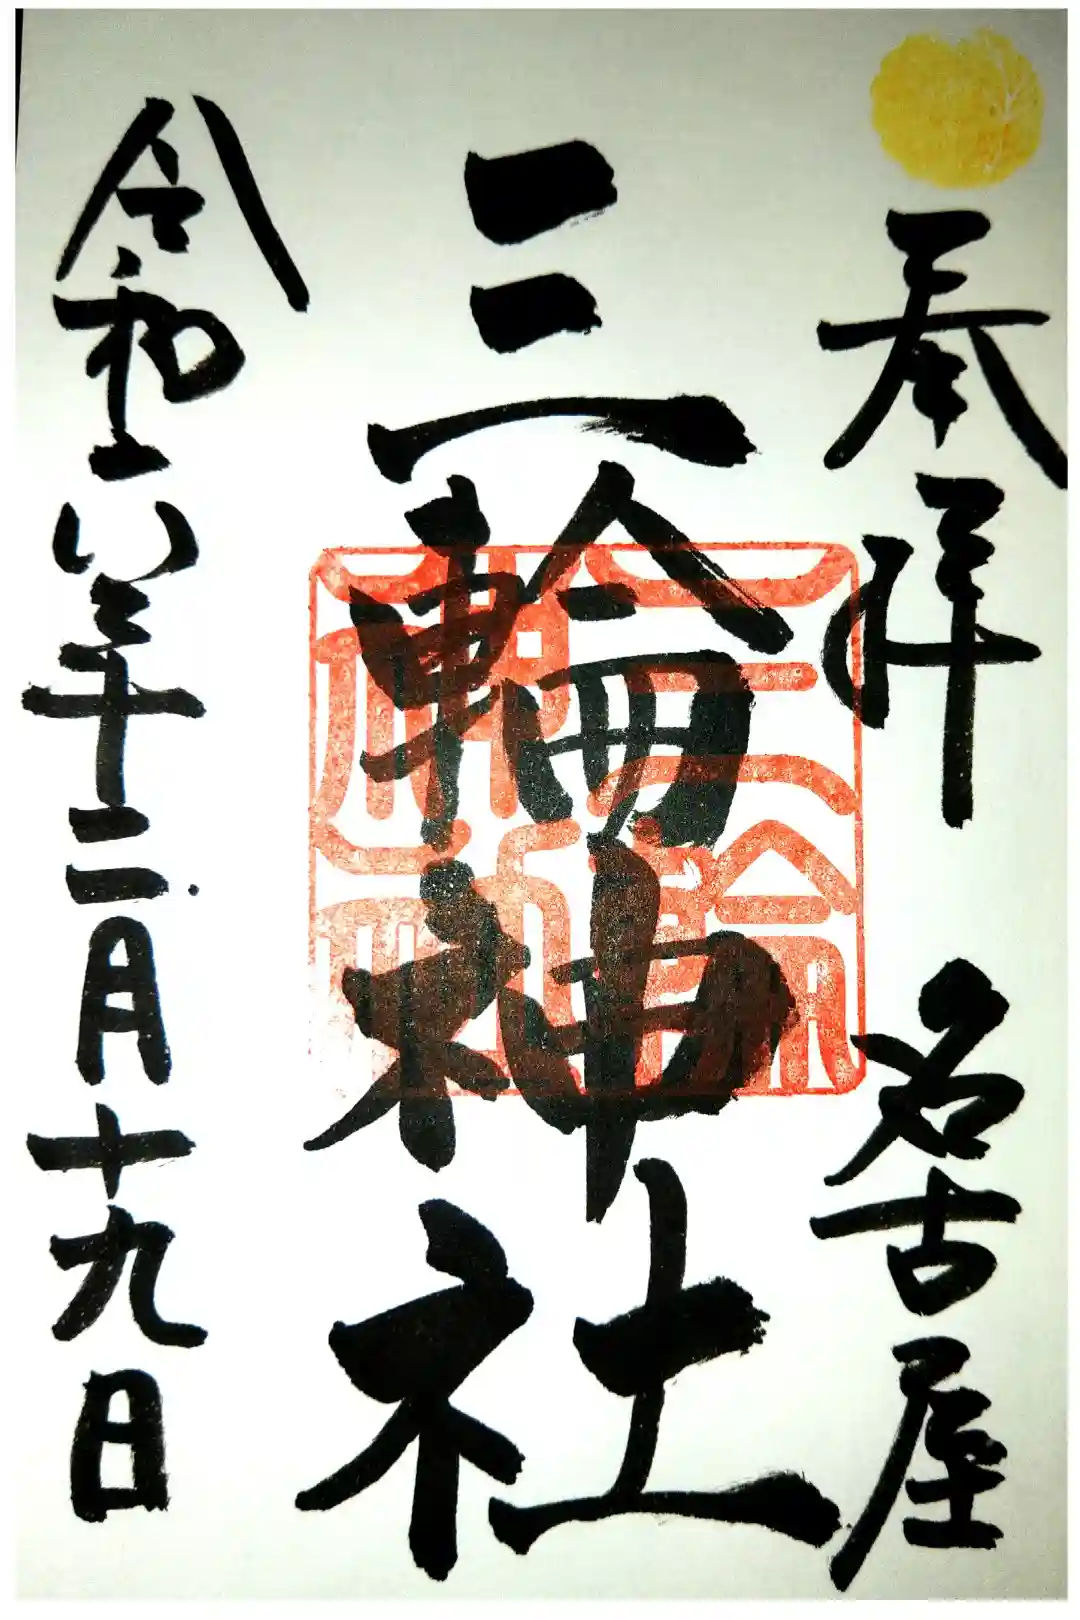 奉拝 名古屋
三輪神社
令和六年二月十九日
三輪神社